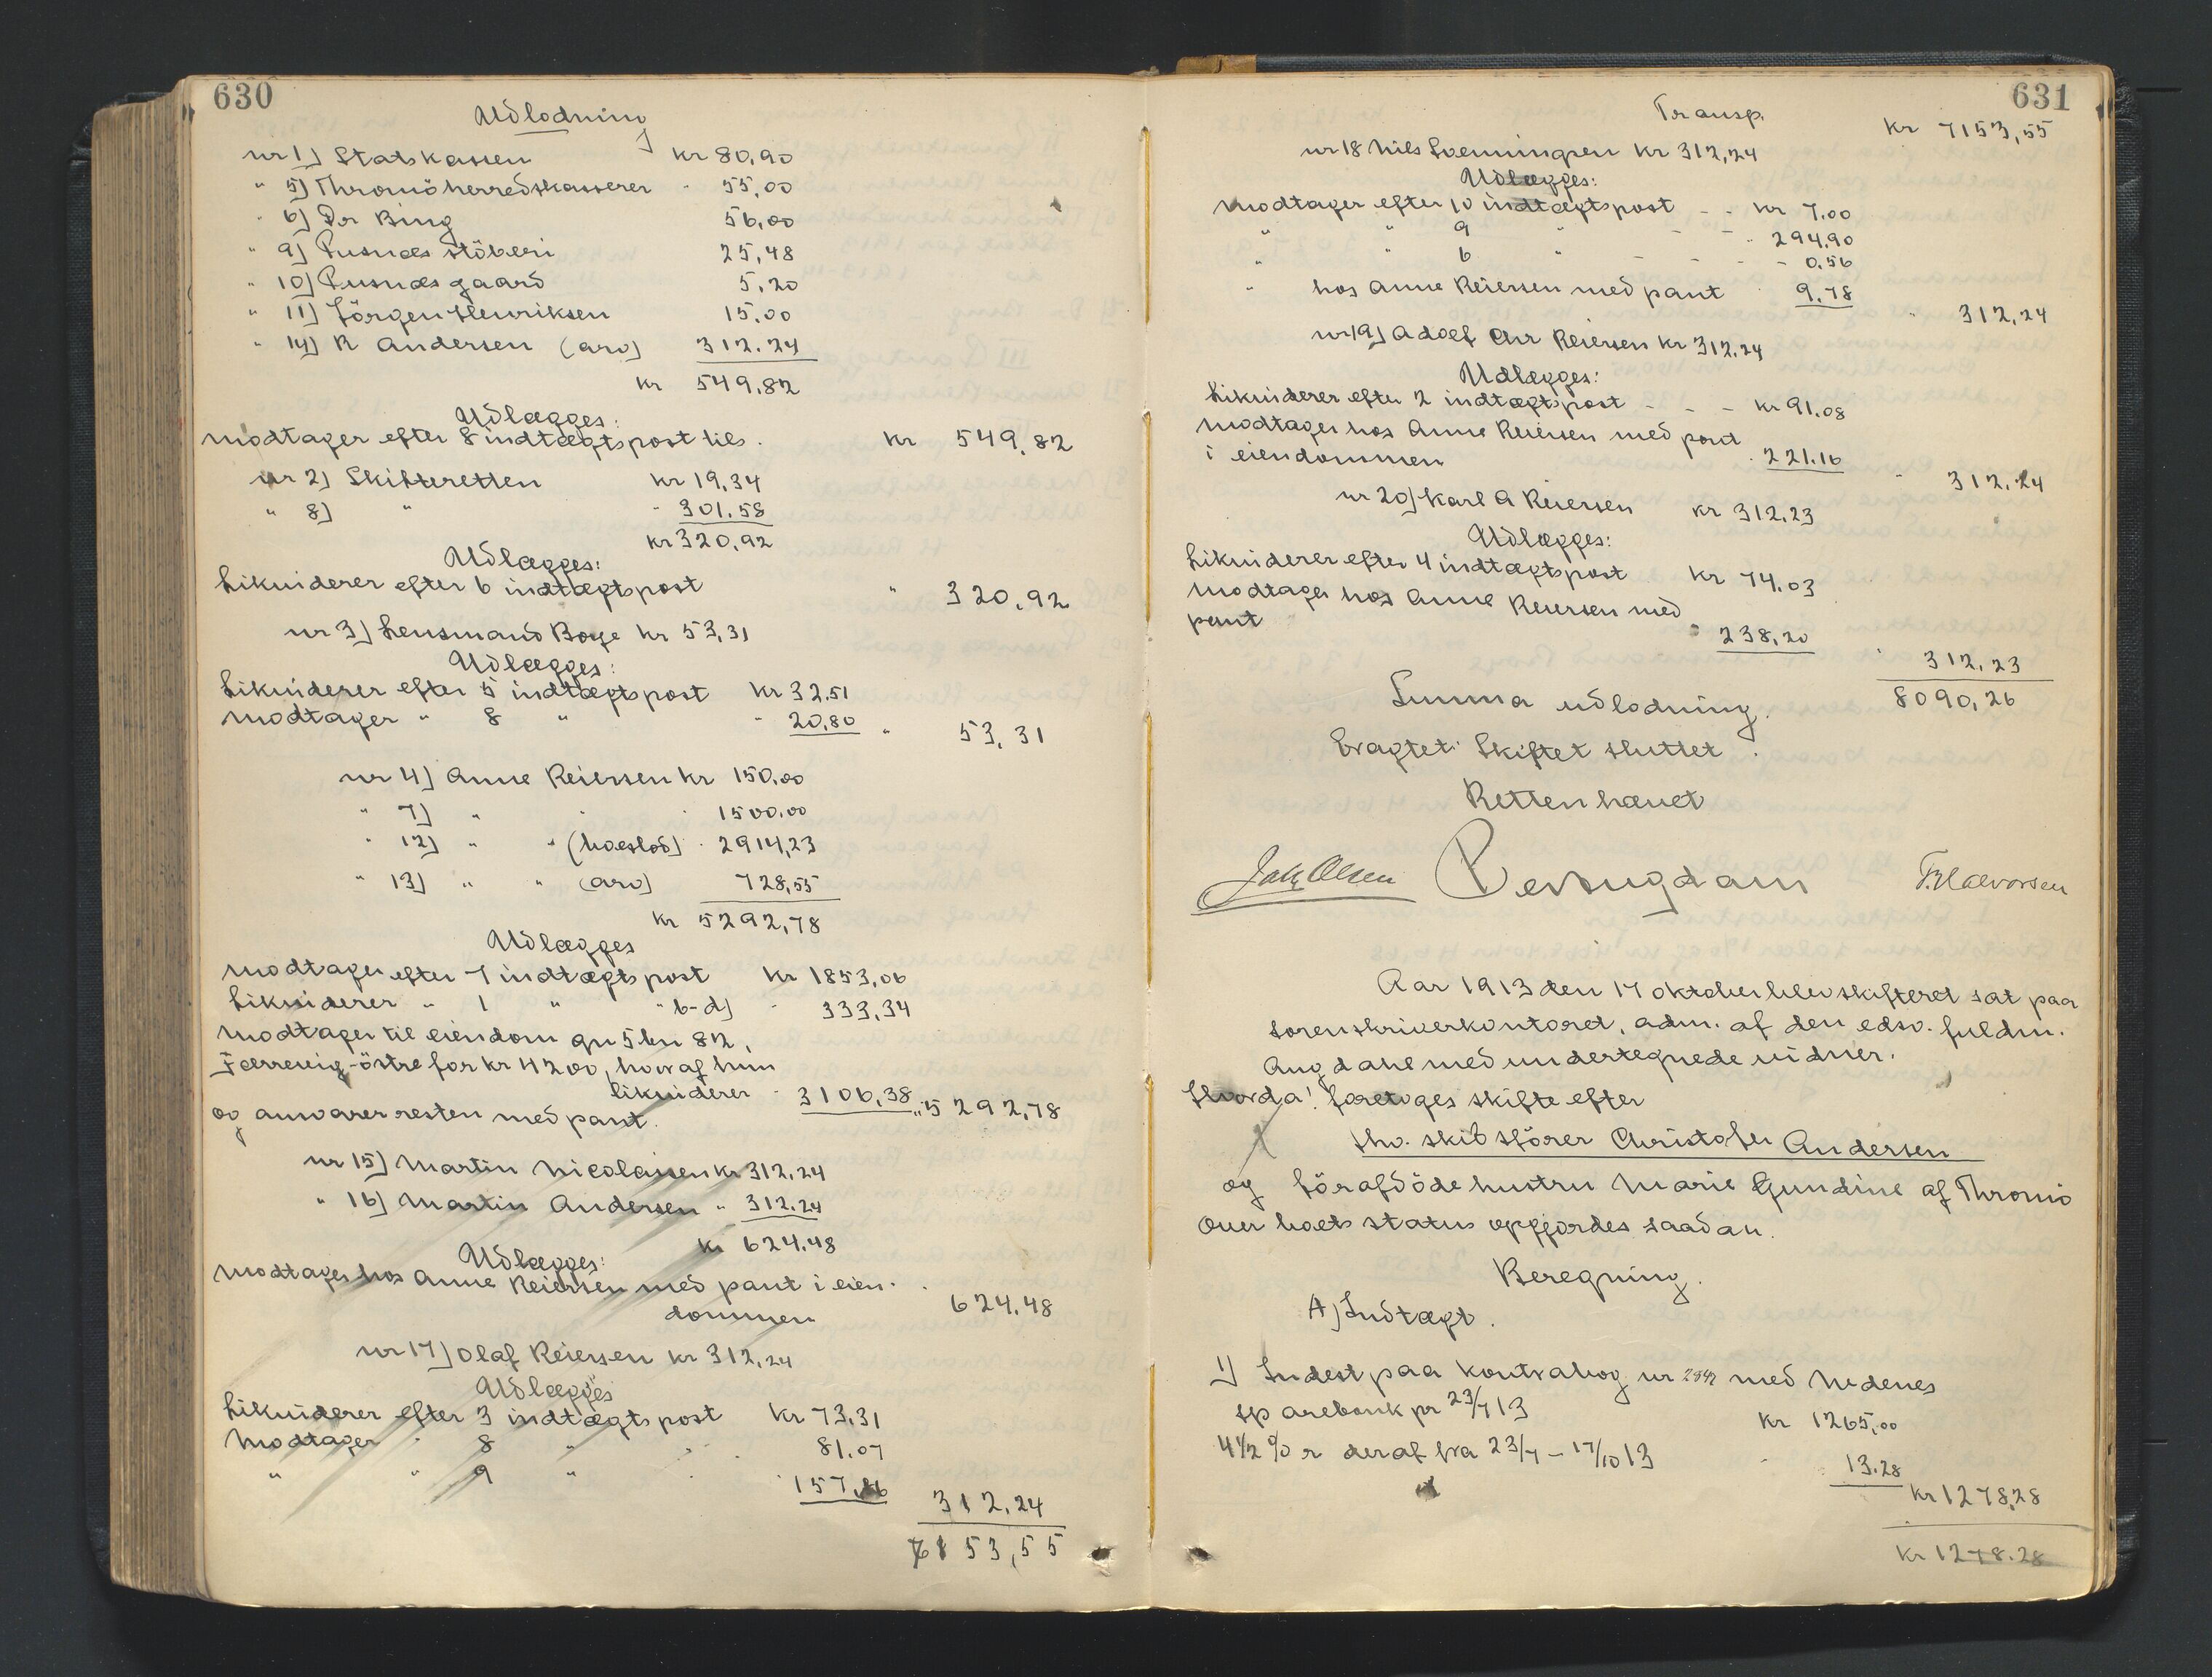 630
Udlodning
nr 1) Statskassen kr 80,90
" 5) Thromö herredskasserer " 55,00
" 6) Dr Bing 56,00
" 9) Pusnæs stöberi 25,48
" 10) Pusnæs gaard 5,20
" 11) Jörgen Henriksen 15,00
" 14) R Andersen (arv) 312.24
kr 549,82
Udlægges:
modtager efter 8 indtægtspost tils. kr 549,82
nr 2) Skifteretten kr 19,34
" 8) " " 301.58
kr 320,92
Udlægges:
Likviderer efter 6 indtægtspost " 320,92
nr 3) Lensmand Boye kr 53,31
Udlægges:
Likviderer efter 5 indtægtspost kr 32,51
modtager " 8 " " 20,80 " 53,31
nr 4) Anne Reiersen kr 150,00
" 7) " " 1500.00
" 12) " " (boeslod) " 2914,23
" 13) " " (arv) 728,55
kr 5292,78
Udlægges
modtager efter 7 indtægtspost kr 1853,06
Likviderer " 1 " " b-d) " 333,34
modtager til eiendom gn 5 bn 82,
Færrevig-östre for kr 4200, hvoraf hun
likviderer " 3106,38 " 5292,78
og ansvarer resten med pant.
nr 15) Martin Nicolaissen kr 312,24
" 16) Martin Andersen " 312.24
kr 624,48
Udlægges:
modtages hos Anne Reiersen med pant i eien-
dommen 624,48
nr 17) Olaf Reiersen kr 312,24
Udlægges
Likviderer efter 3 indtægtspost kr 73,31
modtager " 8 " " 81.07
" " 9 " " 157,86
312,24
7153,55
631
Transp. kr 7153,55
nr 18 Nils Svenningsen kr 312,24
Udlægges:
modtager efter 10 indtægtspost - - kr 7.00
" " 9 " - - " 294,90
" " 6 " - - - - 0,56
" hos Anne Reiersen med pant " 9,78
" 312,24
nr 19) Adolf Chr Reiersen kr 312.24
Udlægges:
Likviderer efter 2 indtægtspost - - - kr 91.08
modtages hos Anne Reiersen med pant
i eiendommen " 221.16
" 312.24
nr 20) Karl A Reiersen kr 312,23
Udlægges:
Likviderer efter 4 indtægtspost kr 74.03
modtages hos Anne Reiersen med
pant " 238,20
" 312,23
Summa udlodning. 8090,26
Eragtet: Skiftet sluttet.
Retten hævet
Per Augdahl
Aar 1913 den 17 oktober blev skifteret sat paa
sorenskriverkontoret, adm. af den edsv. fuldm.
Augdahl med undertegnede vidner.
Hvorda! foretoges skifte efter
fhv. skibsförer Christofer Andersen
og förafdöde hustru Marie Gundine af Thromö
over boets status opgjordes saadan.
Beregning.
A) Indtægt.
1) Indest paa kontrabog nr 2892 med Nedenes
sparebank pr 23/7 13 kr 1265,00
4 1/2 % r deraf fra 23/7 – 17/10 13 " 13.28
kr 1278,28
kr 1278.28